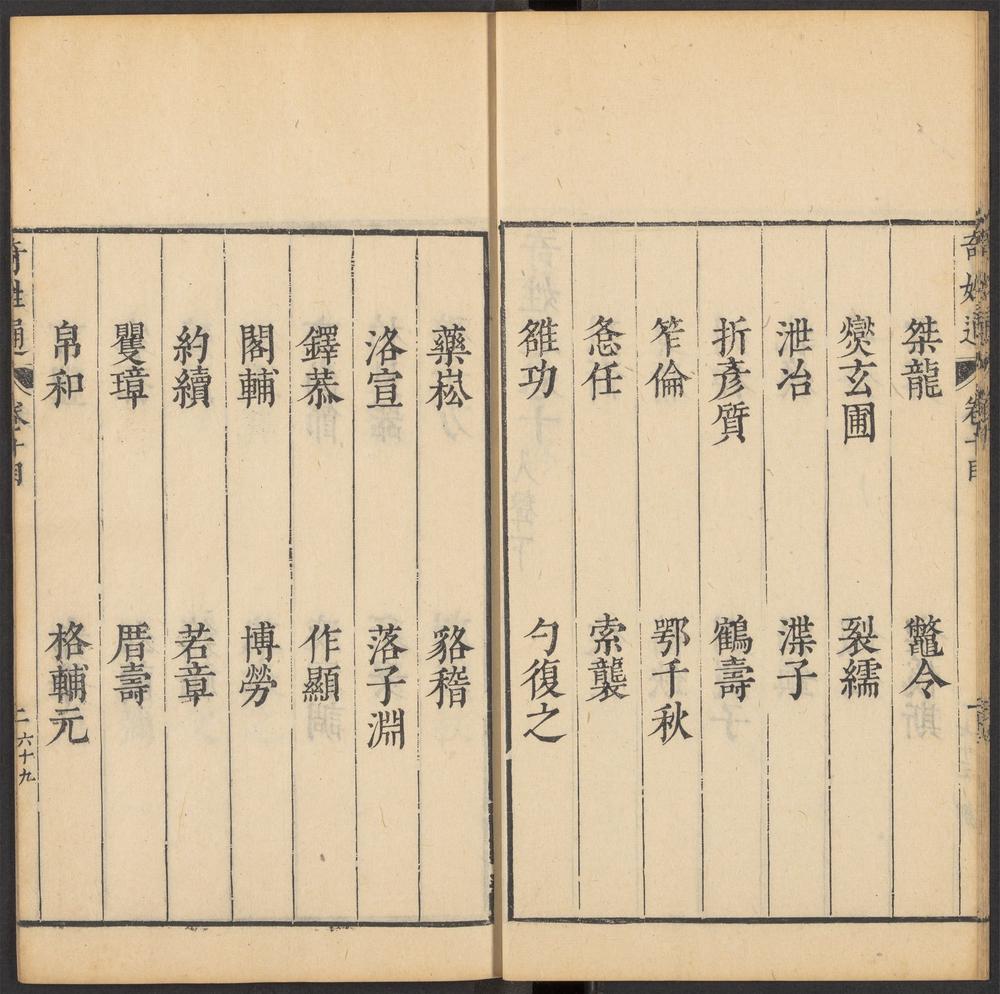 桀龍 鼈令
爕玄圃 裂繻
泄冶 渫子
折彥質 鶴壽
笮倫 鄂千秋
㤅任 索襲
雒功 勺復之
藥崧 貉稽
洛宣 落子淵
鐸恭 作顯
閣輔 博勞
約續 若章
矍璋 厝壽
帛和 格輔元
奇姓通 卷十目 二六十九